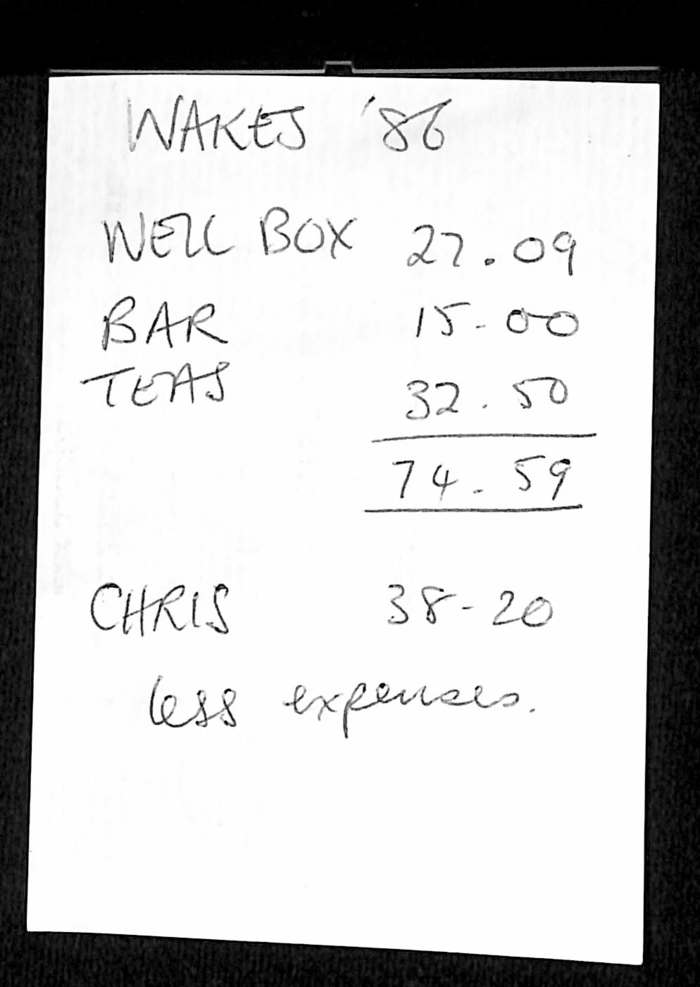 WAKES '86
WELL BOX 27.09
BAR 15-00
TEAS 32.50
74.59
CHRIS 38-20
less expenses.